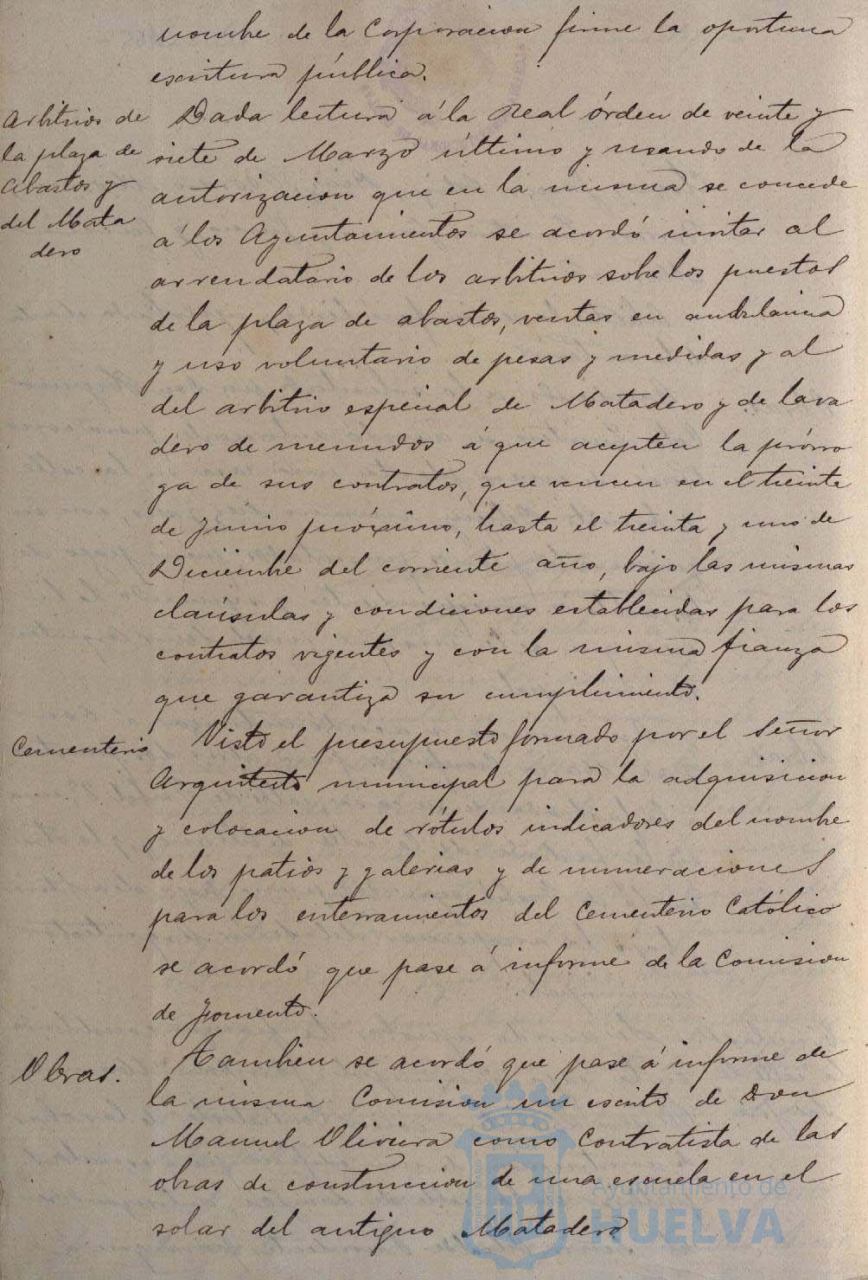 nombre de la Corporacion firme la oportuna
escritura pública.
Arbitrios de
la plaza de
Abastos y
del Mata
dero
Dada lectura á la Real órden de veinte y
siete de Marzo último y usando de la
autorizacion que en la misma se concede
á los Ayuntamientos se acordó invitar al
arrendatario de los arbitrios sobre los puestos
de la plaza de abastos, ventas en ambulancia
y uso voluntario de pesas y medidas y al
del arbitrio especial de Matadero y de lava
dero de menudos á que acepten la prórro
ga de sus contratos, que vencen en el treinta
de Junio próximo, hasta el treinta y uno de
Diciembre del corriente año, bajo las mismas
claúsulas y condiciones establecidas para los
contratos vigentes y con la misma fianza
que garantiza su cumplimiento.
Cementerio
Visto el presupuesto formado por el Señor
Arquitecto municipal para la adquisicion
y colocacion de rótulos indicadores del nombre
de los patios y galerias y de numeraciones
para los enterramientos del Cementerio Católico
se acordó que pase á informe de la Comision
de Fomento.
Obras.
Tambien se acordó que pase á informe de
la misma Comision un escrito de Don
Manuel Oliviera como Contratista de las
obras de construccion de una escuela en el
solar del antiguo Matadero
Ayuntamiento de
HUELVA